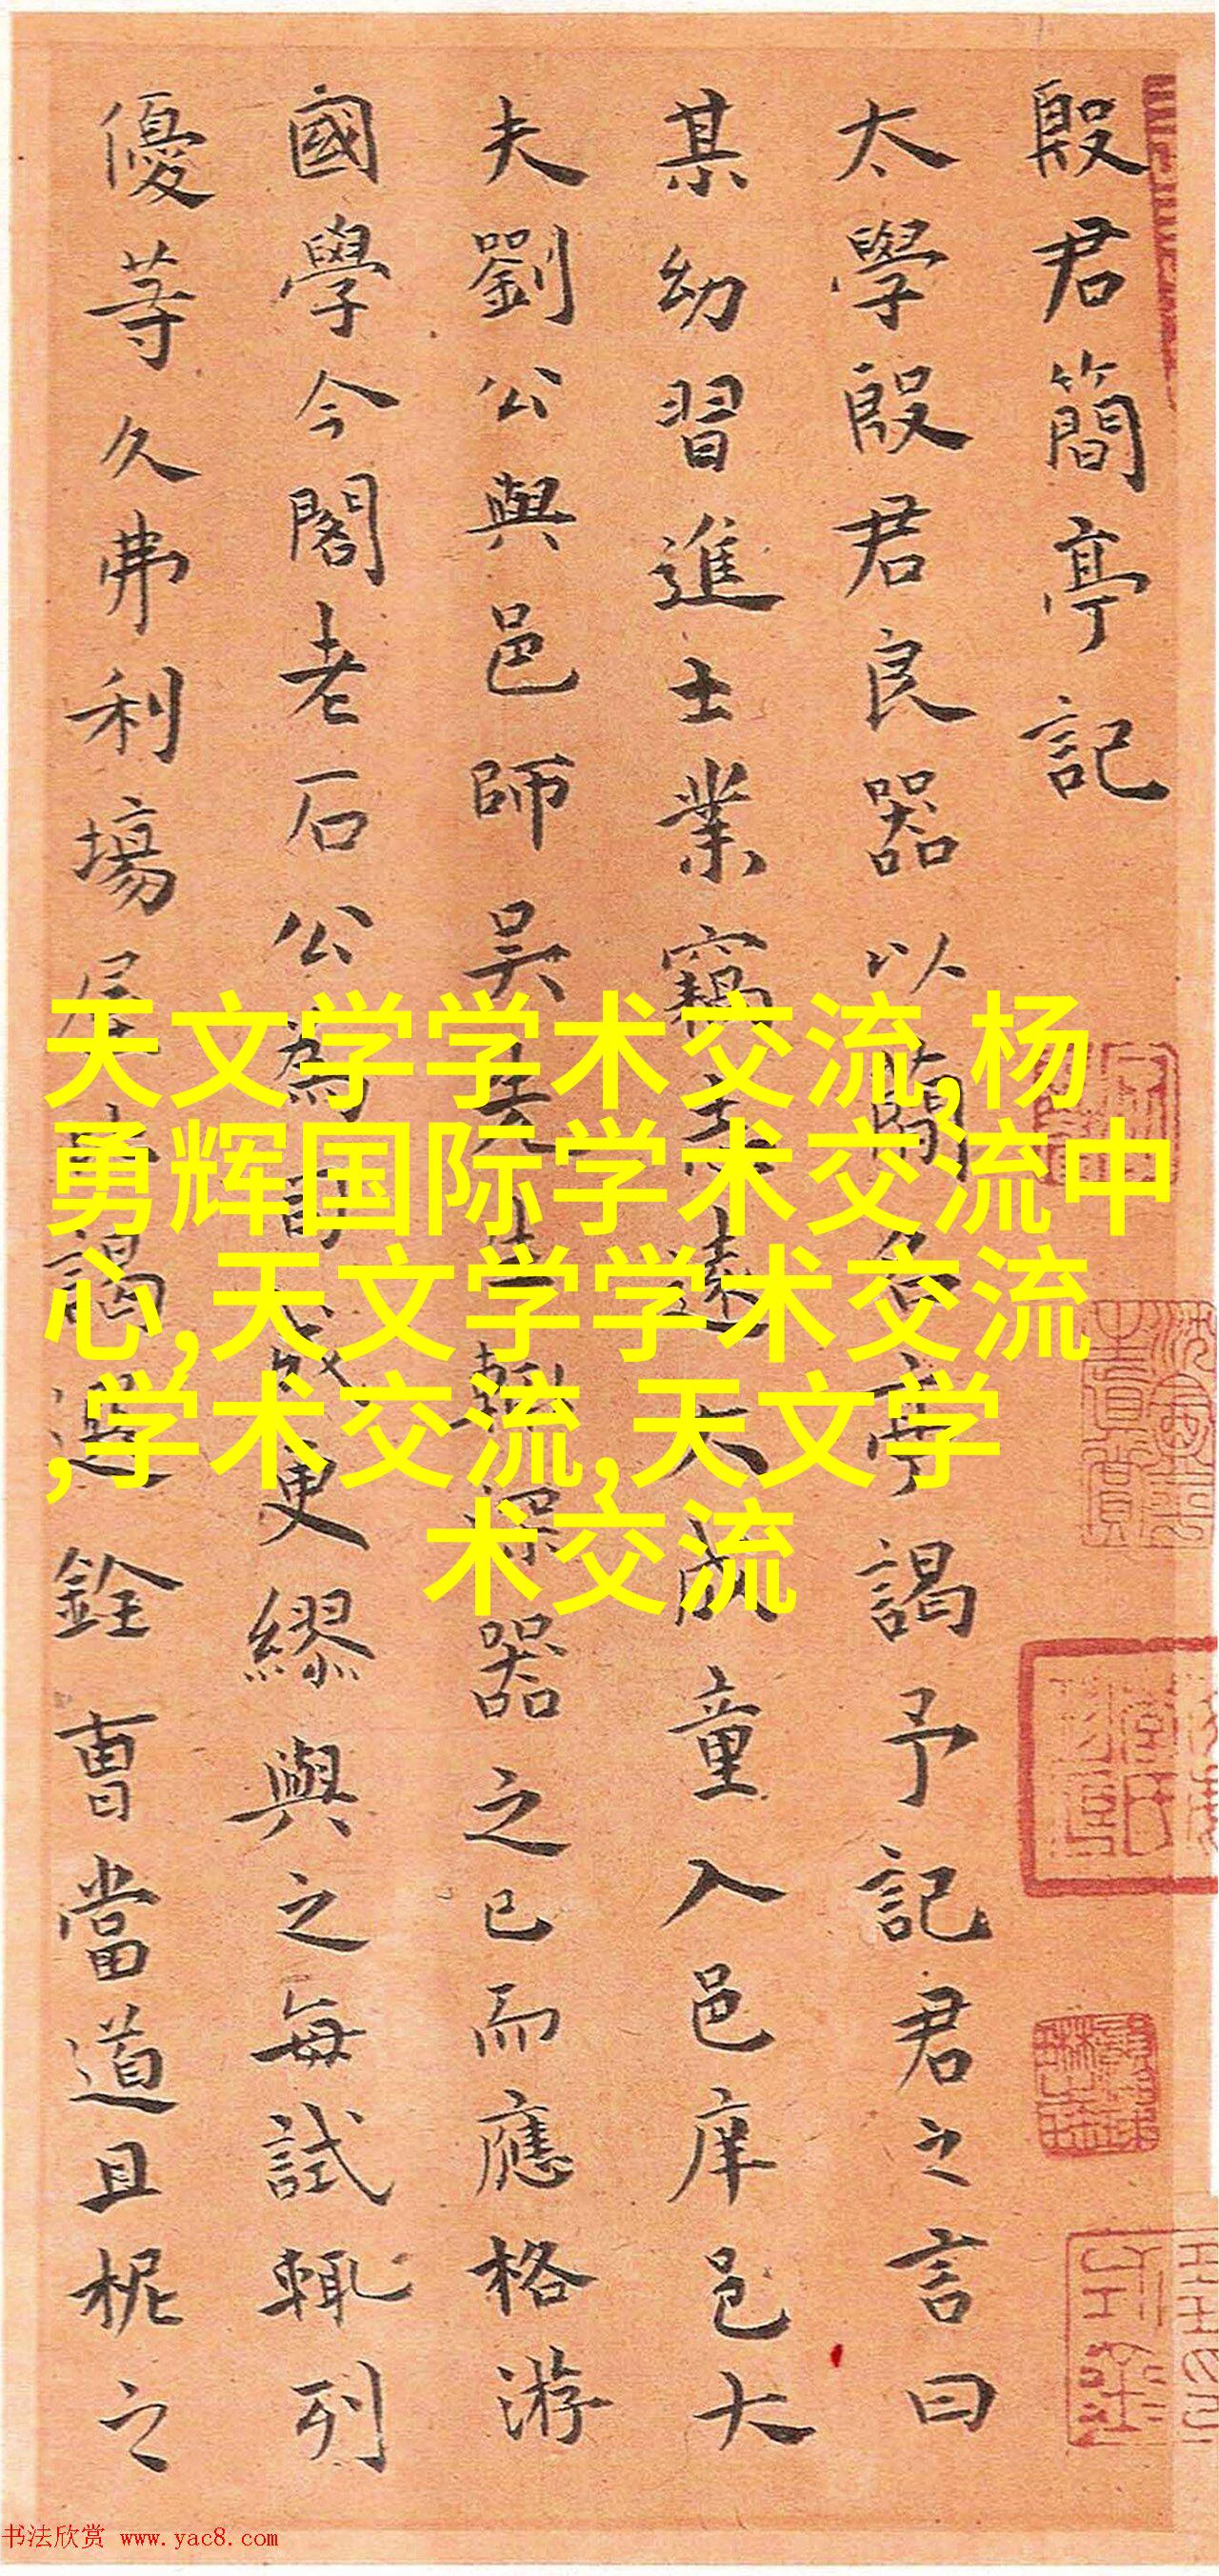 殷君簡亭記
太學殷君良器以簡名亭謁予記君之言曰
某幼習進士業竊志遠大成童入邑庠邑大
夫劉公與邑師吳先生輒深器之已而應格游
國學今閣老石公為更繆與之每試輒列
優等久弗利場屋謁選銓曹當道且柅之
天文学学术交流,杨
勇辉国际学术交流中
心,天文学学术交流
,学术交流,天文学
术交流
书法欣赏 www.yac8.com